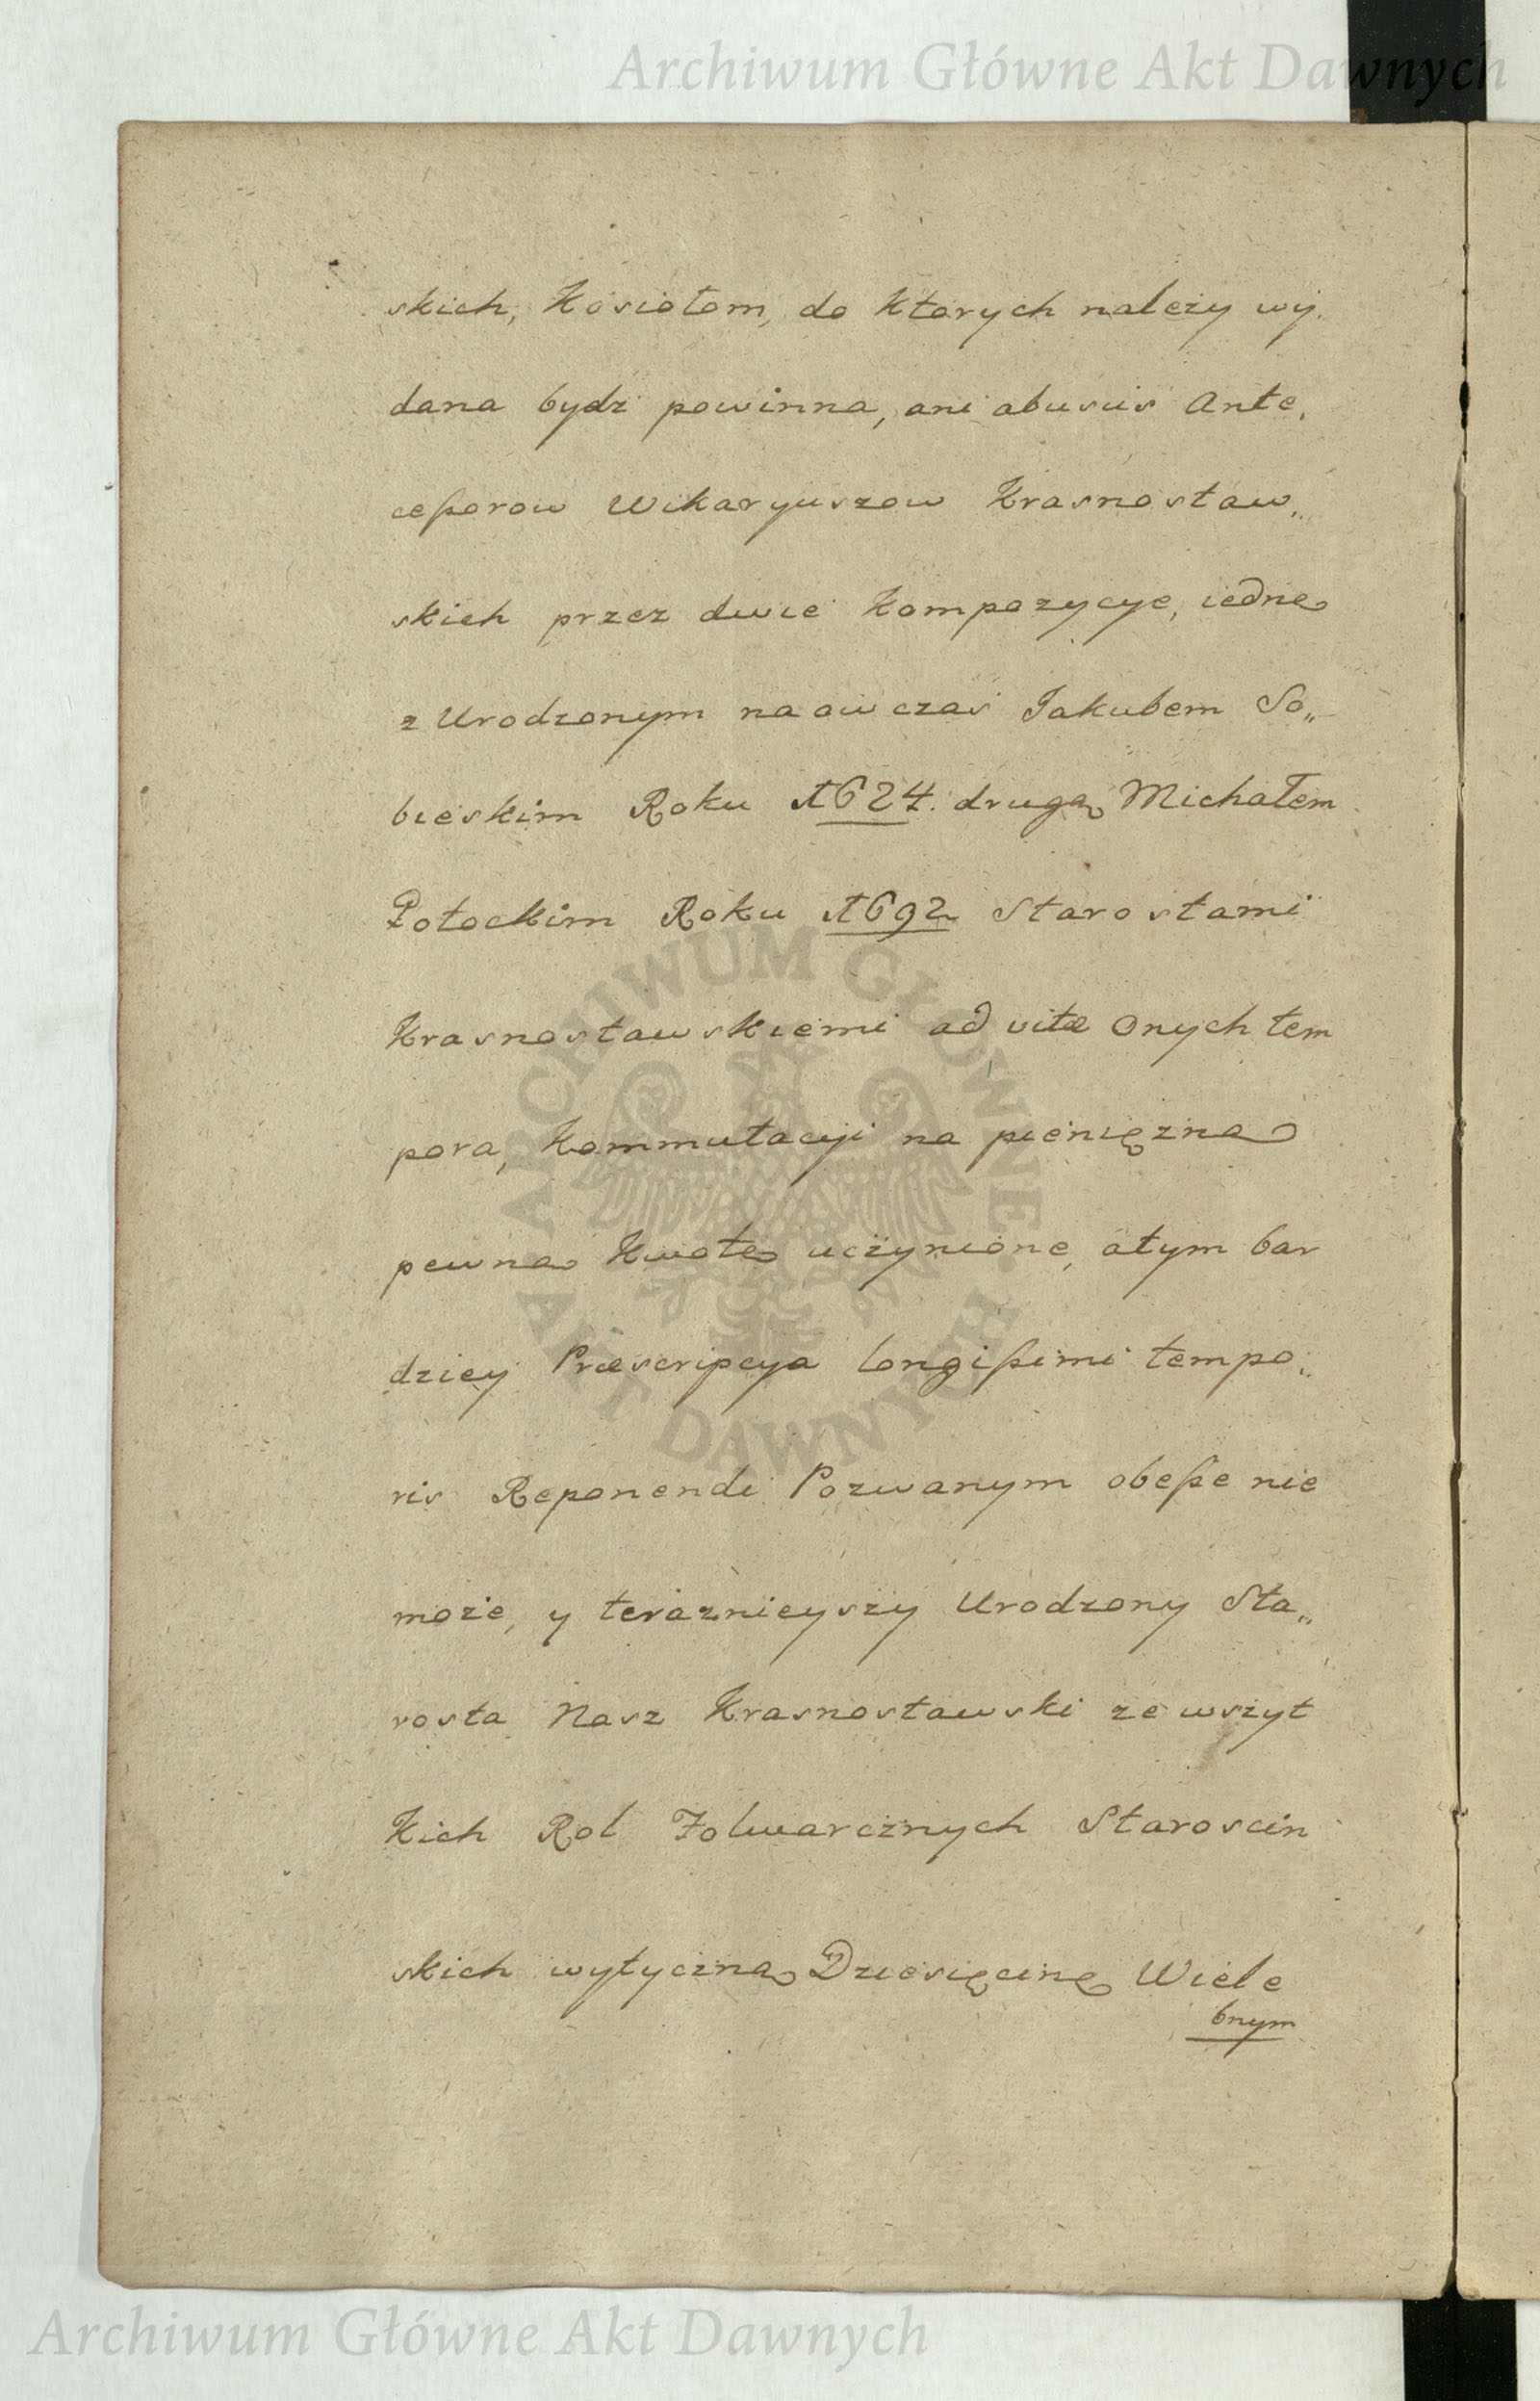 Archiwum Główne Akt Dawnych
skich, Kosiołom, do Ktorych należy wy.
dana bydz powinna, ani abusus Ante,
ceßorow Wikaryuszow Krasnostaw,,
skich przez dwie Kompozycye, iednę
z Urodzonym naowczas Jakubem So,,
bieskim Roku 1624. drugą Michałem
Potockim Roku 1692 Starostami
Krasnostawskiemi ad vitæ onych tem
pora, Kommutacyi na pieniężną
pewną Kwotę uczynione, atym bar
dziey Præscripcya longißimi tempo,,
ris Reponendi Pozwanym obeße nie
może, y teraznieyszy Urodzony Sta,,
rosta Nasz Krasnostawski ze wszyt
Kich Rol Folwarcznych Staroscin
skich wytyczną Dziesięcinę Wiele
bnym
ARCHIWUM GŁÓWNE AKT DAWNYCH
Archiwum Główne Akt Dawnych